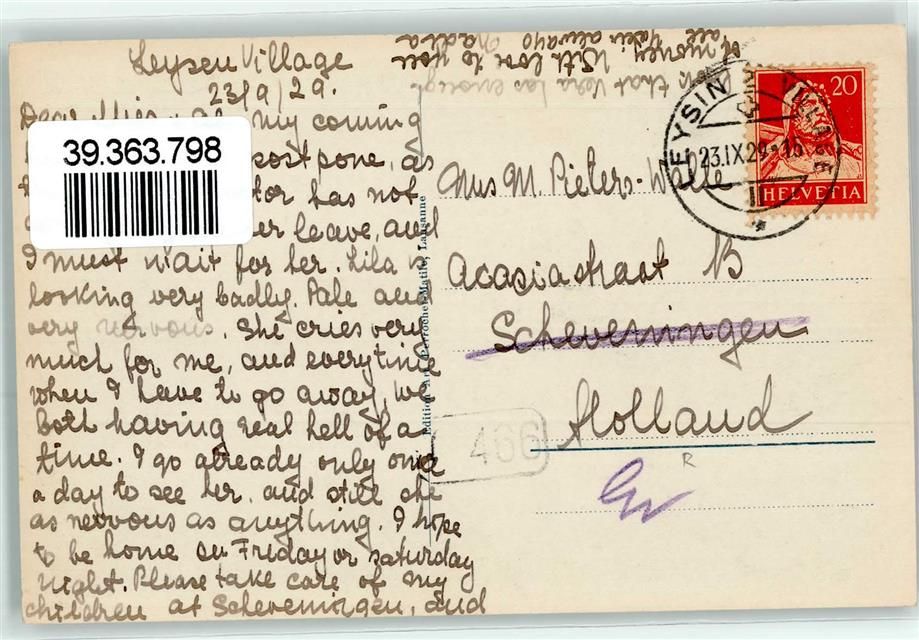 Leysen Village
23/9/29.
Dear my coming
postpone, as
has not
her leave, and
I must wait for her. Lila is
looking very badly. Pale and
very nervous. She cries very
much for me, and everytime
when I have to go away, we
both having real hell of a
time. I go already only once
a day to see her, and still she
as nervous as anything. I hope
to be home on Friday or saturday
night. Please take care of my
children at Scheveningen, and
that Vera has enough
of money. With love to you
all always Nadia
39.363.798
Mrs M. Pieters-Walle
Acaciastraat
Scheveningen
Holland
466
R
LEYSIN VILLAGE
23.IX.29
20
HELVETIA
Edition Art. Perrochet-Matile, Lausanne